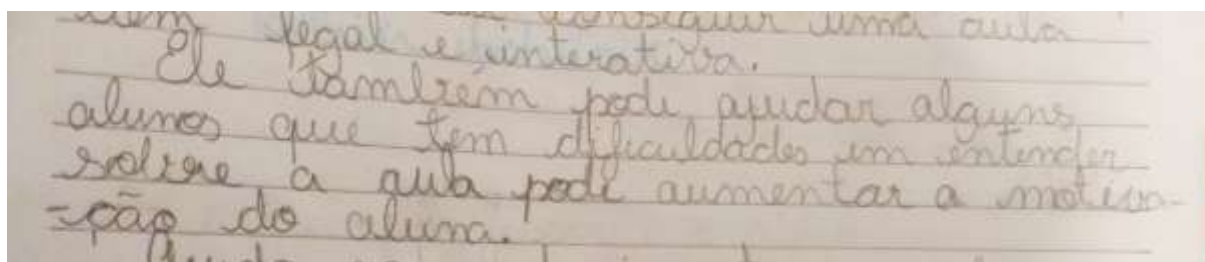 bem legal e interativa.
Ele também pode ajudar alguns
alunos que tem dificuldades em entender
sobre a aula pode aumentar a motiva-
-ção do aluna.